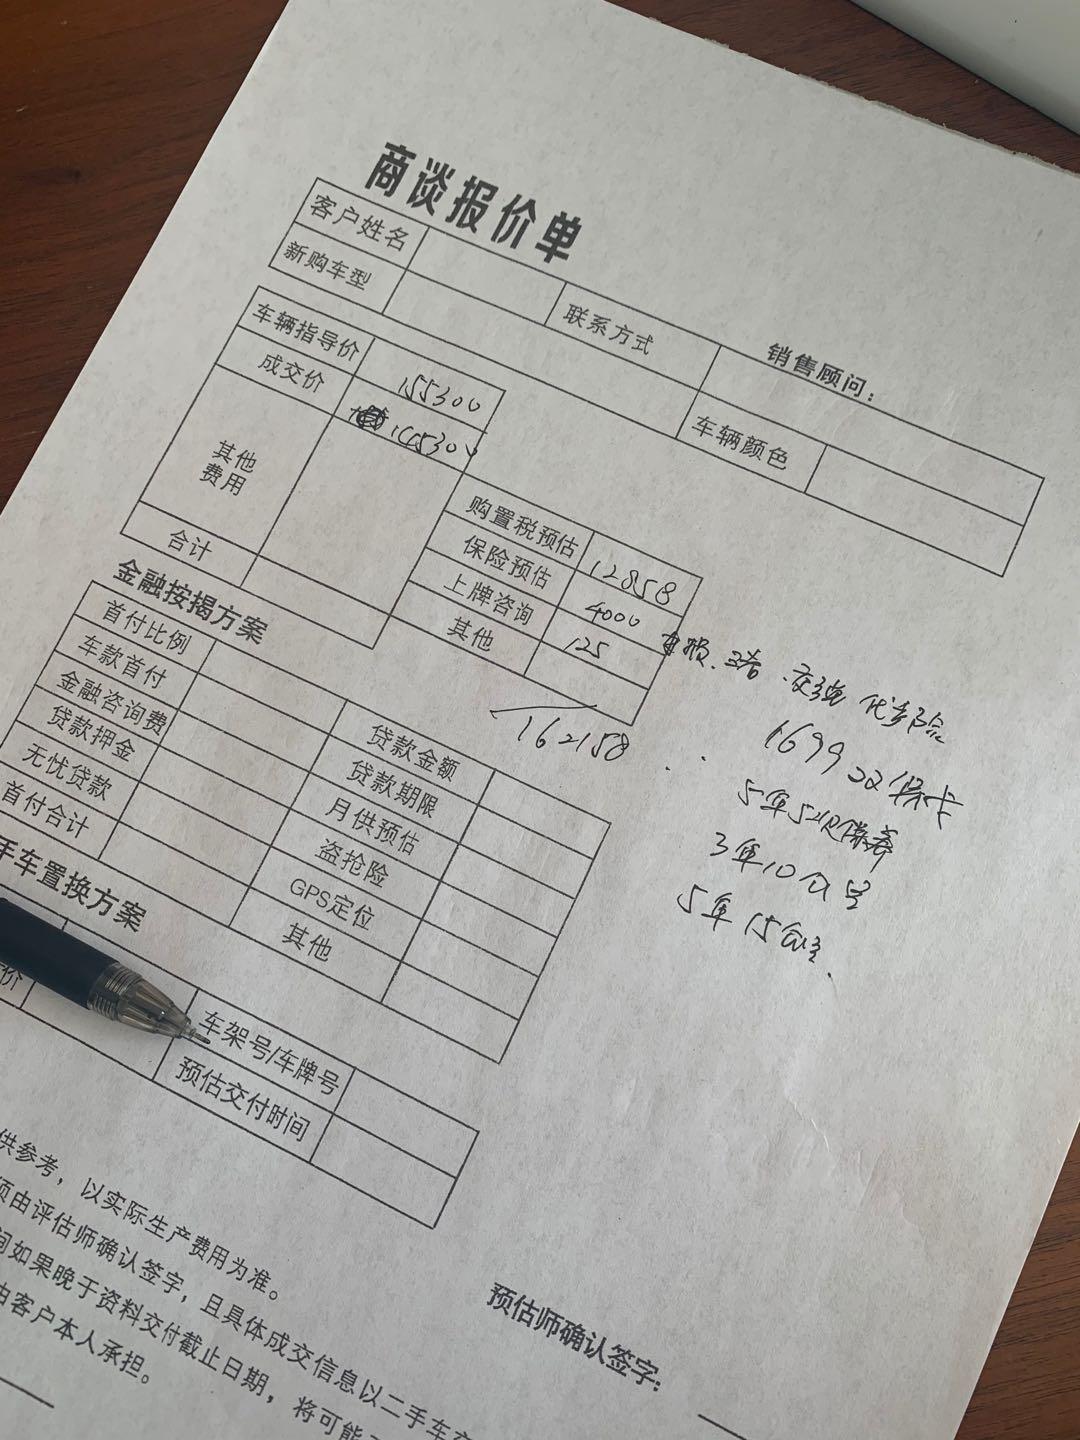 商谈报价单
销售顾问：
客户姓名
联系方式
新购车型
车辆颜色
车辆指导价 155300
成交价 145300
其他
费用
合计
购置税预估 12858
保险预估 4000
上牌咨询 125
其他
162158
车损、三者、交强
1699
5年5次保养
3年10公里
5年15公里
金融按揭方案
首付比例
贷款金额
车款首付
贷款期限
金融咨询费
月供预估
贷款押金
盗抢险
无忧贷款
GPS定位
首付合计
其他
手车置换方案
价
车架号/车牌号
预估交付时间
供参考，以实际生产费用为准。
须由评估师确认签字，且具体成交信息以二手车
间如果晚于资料交付截止日期，将可能
由客户本人承担。
预估师确认签字: